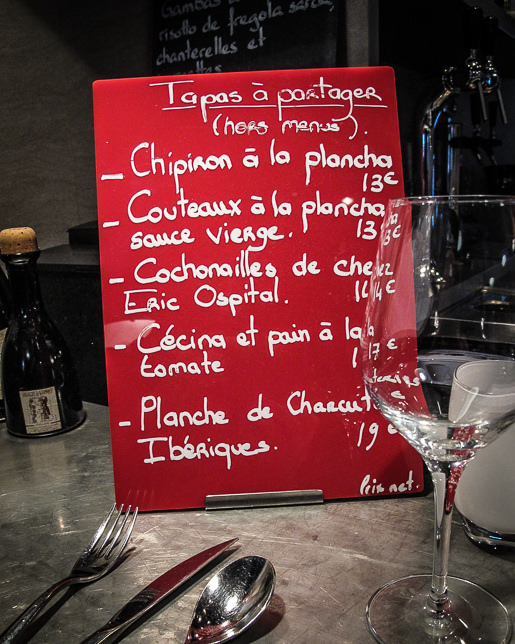 Gambas
risotto de fregola sarde,
chanterelles et
Tapas à partager
(hors menus).
- Chipiron à la plancha
13€
- Couteaux à la plancha,
sauce vierge. 13€
- Cochonailles de chez
Eric Ospital. 14€
- Cécina et pain à la
tomate 17€
- Planche de Charcuteries
Ibériques. 19€
Prix net.